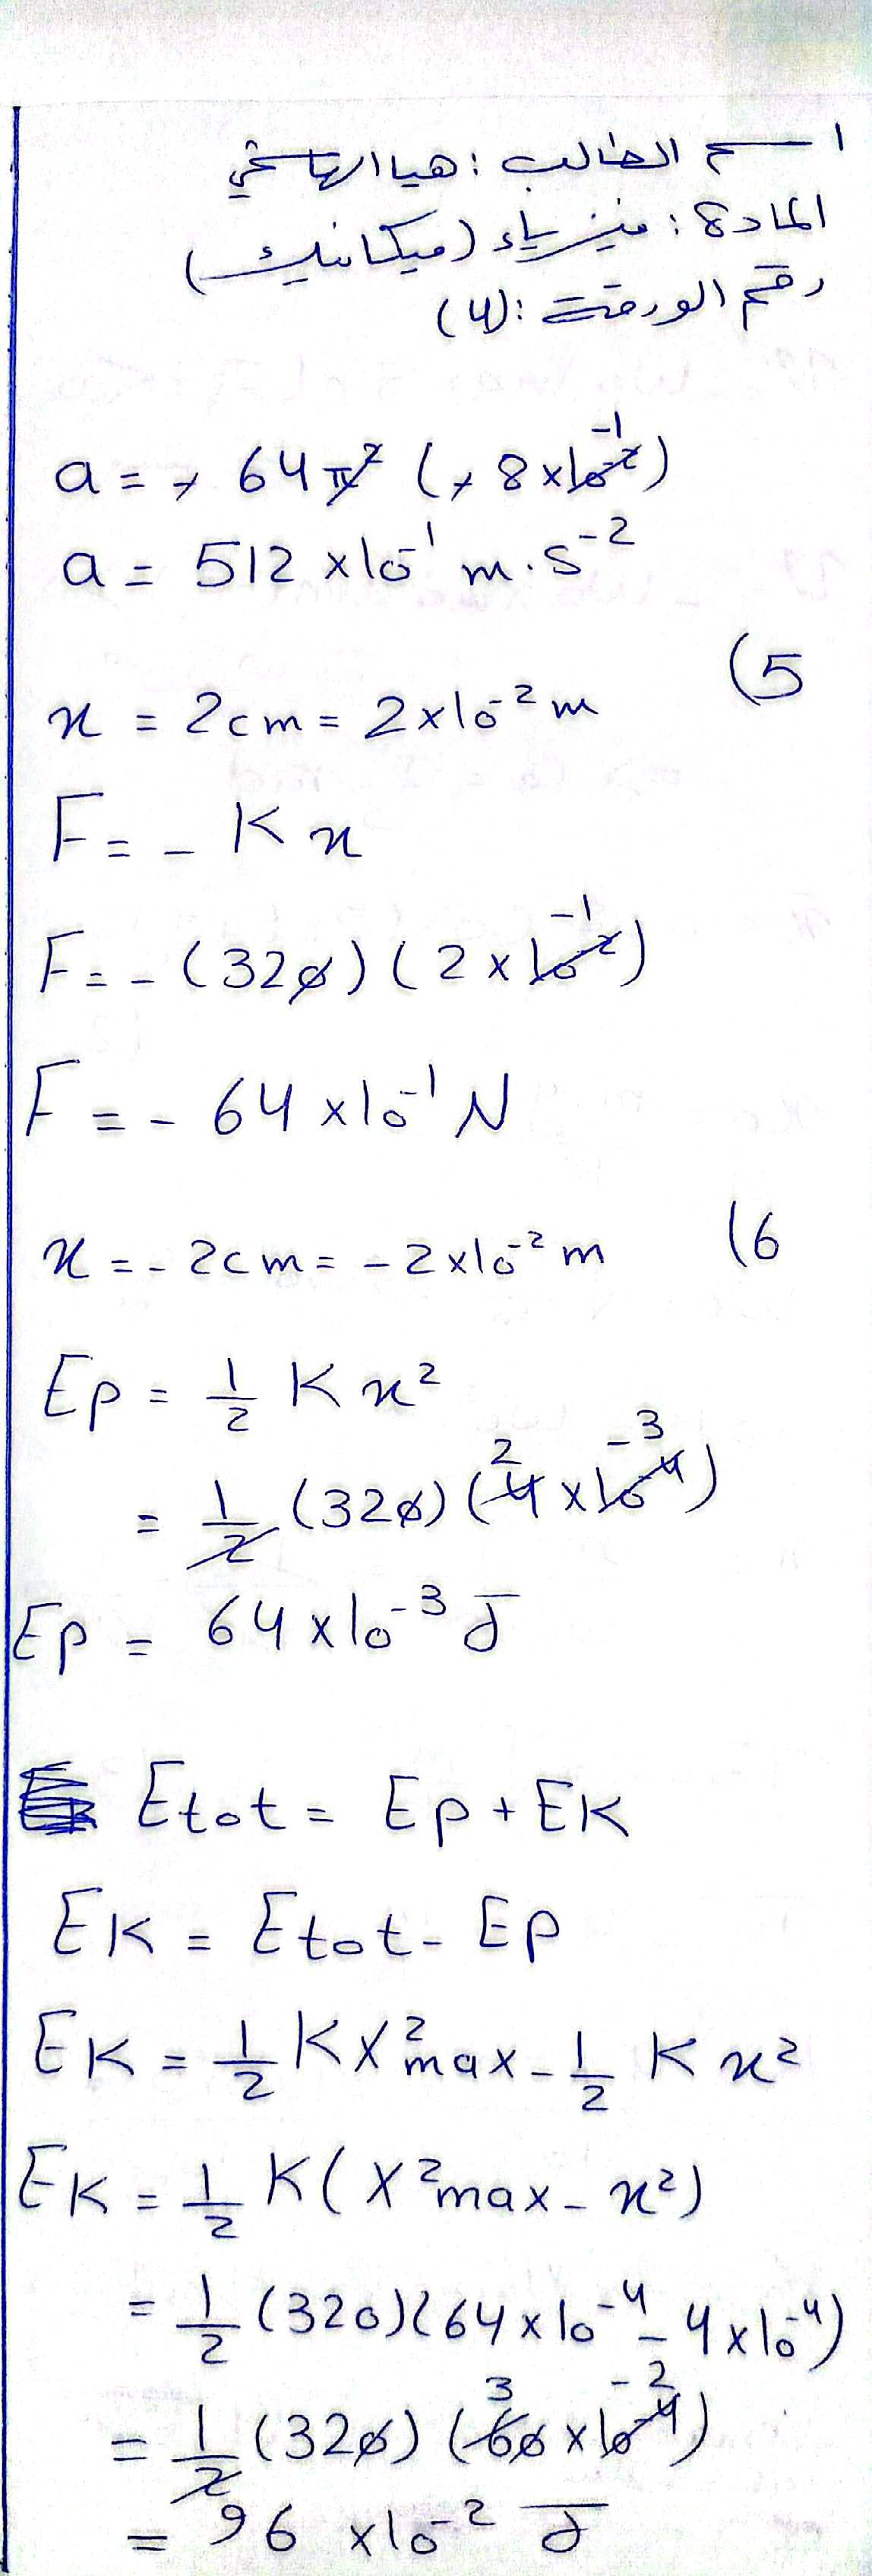 اسم الطالب : هيا الهاشمي
المادة : فيزياء (ميكانيك)
رقم الورقة : (4)
a = + 64 π² (+ 8 × 10⁻² ⁻¹)
a = 512 × 10⁻¹ m.s⁻²
(5
x = 2cm = 2×10⁻² m
F = - K x
F = - (320) (2 × 10⁻² ⁻¹)
F = - 64 × 10⁻¹ N
(6
x = - 2cm = - 2×10⁻² m
Ep = 1/2 K x²
= 1/2 (320) (4 2 × 10⁻⁴ ⁻³)
Ep = 64 × 10⁻³ J
Etot = Ep + EK
EK = Etot - Ep
EK = 1/2 K X²max - 1/2 K x²
EK = 1/2 K (X²max - x²)
= 1/2 (320) (64 × 10⁻⁴ - 4 × 10⁻⁴)
= 1/2 (320) (60 3 × 10⁻⁴ ⁻²)
= 96 × 10⁻² J